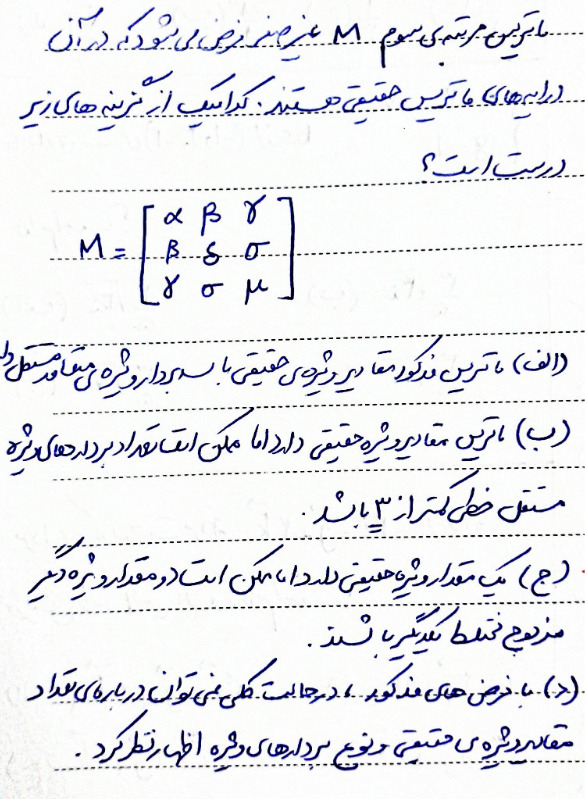 ماتریس مرتبه‌ی سوم M غیر صفر فرض می‌شود که در آن
درایه‌های ماتریس حقیقی هستند. کدامیک از گزینه‌های زیر
درست است؟
M = [ α β γ
β δ σ
γ σ μ ]
(الف) ماتریس مذکور مقادیر ویژه‌ی حقیقی با سه بردار ویژه‌ی متعامد مستقل دارد
(ب) ماتریس مقادیر ویژه حقیقی دارد اما ممکن است تعداد بردارهای ویژه
مستقل خطی کمتر از ۳ باشد.
(ج) یک مقدار ویژه حقیقی دارد اما ممکن است دو مقدار ویژه دیگر
مزدوج مختلط یکدیگر باشند.
(د) با فرض‌های مذکور، در حالت کلی نمی‌توان درباره‌ی تعداد
مقادیر ویژه‌ی حقیقی و نوع بردارهای ویژه اظهار نظر کرد.